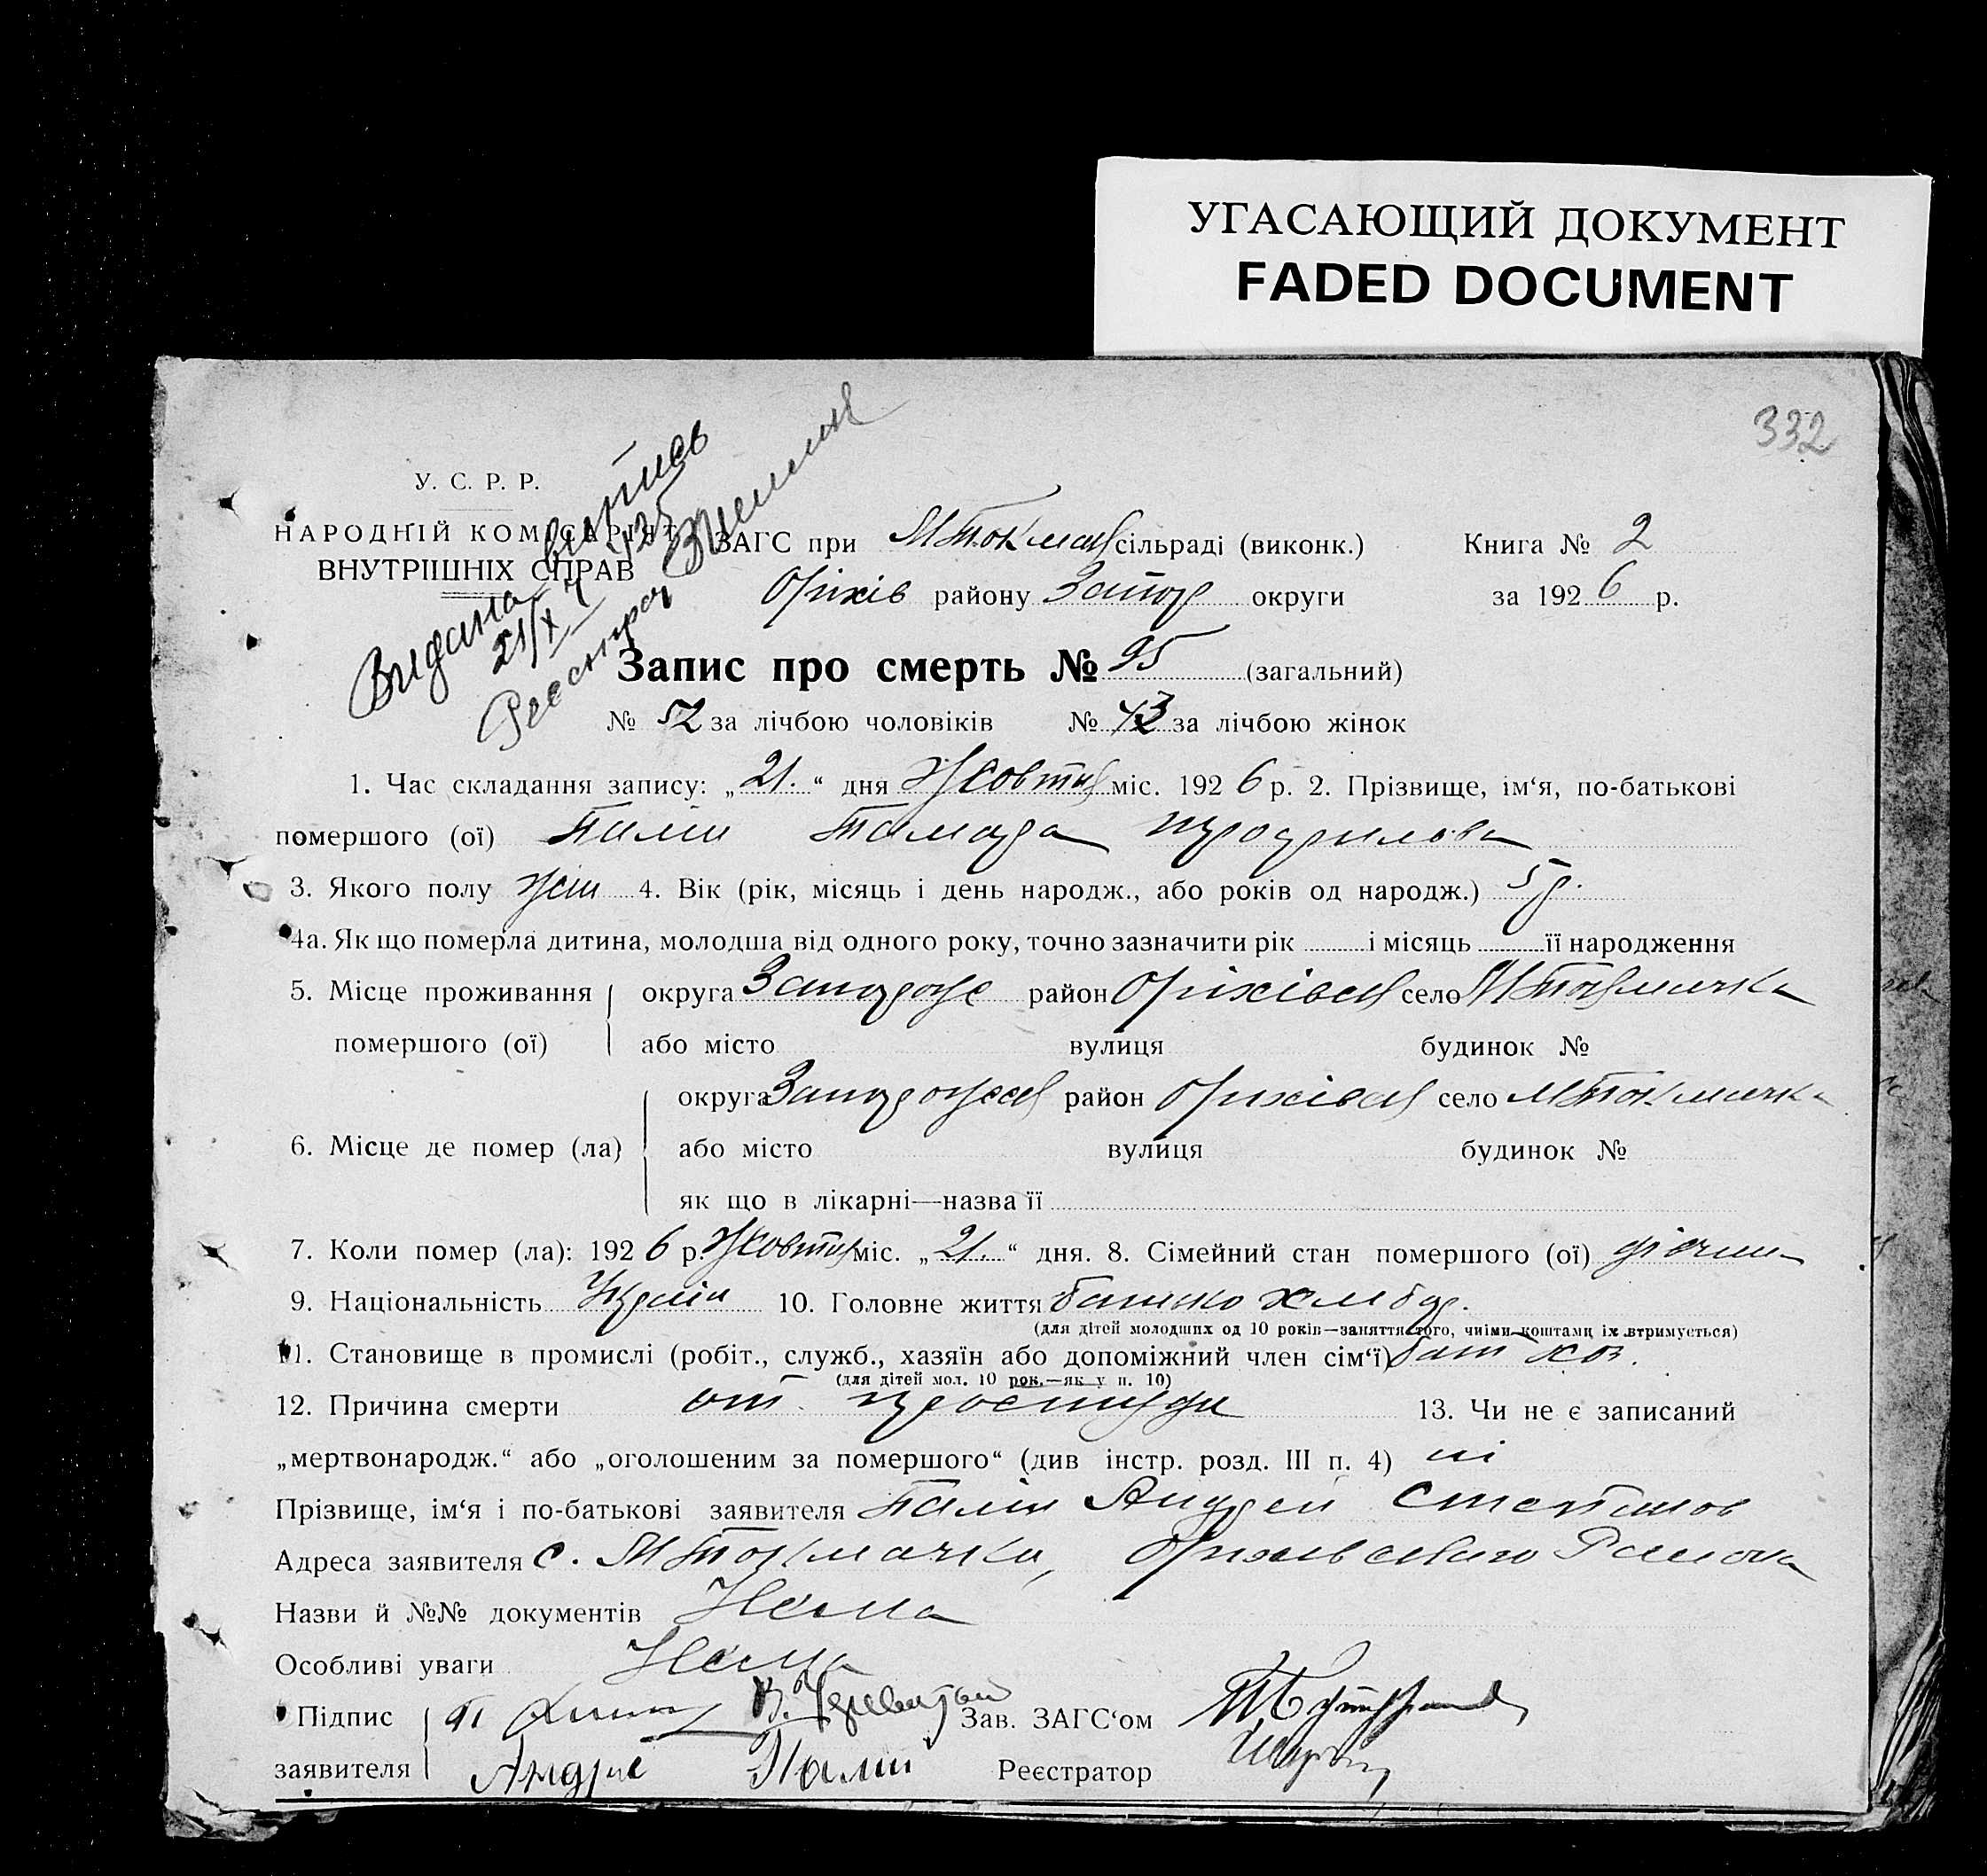 УГАСАЮЩИЙ ДОКУМЕНТ
FADED DOCUMENT
332
У. С. Р. Р.
НАРОДНІЙ КОМІСАРІЯТ
ВНУТРІШНІХ СПРАВ
Видана выпись
21/X
Реестрац
ЗАГС при М Токмац сільраді (виконк.) Книга № 2
Оріхів району Запор округи за 1926 р.
Запис про смерть № 95 (загальний)
№ 52 за лічбою чоловіків № 43 за лічбою жінок
1. Час складання запису: „21.“ дня Жовтня міс. 1926 р. 2. Прізвище, ім‘я, по-батькові
помершого (ої) Палій Тамара
3. Якого полу жін 4. Вік (рік, місяць і день народж., або років од народж.) 5 р.
4а. Як що померла дитина, молодша від одного року, точно зазначити рік і місяць її народження
5. Місце проживання округа Запороже район Оріхівськ село М Токмачка
помершого (ої) або місто вулиця будинок №
округа район Оріхівськ село М Токмачка
6. Місце де помер (ла) або місто вулиця будинок №
як що в лікарні—назва її
7. Коли помер (ла): 1926 р. Жовтня міс. „21.“ дня. 8. Сімейний стан помершого (ої)
9. Національність Країн 10. Головне життя батько хлібор.
(для дітей молодших од 10 років—заняття того, чиїми коштами їх втримується)
11. Становище в промислі (робіт., служб., хазяїн або допоміжний член сім‘ї) бат хоз.
(для дітей мол. 10 рок.—як у п. 10)
12. Причина смерти от простуди 13. Чи не є записаний
„мертвонародж.“ або „оголошеним за помершого“ (див інстр. розд. III п. 4) ні
Прізвище, ім‘я і по-батькові заявителя Палій Андрей Степанов
Адреса заявителя с. М Токмачки, Оріхівського Района
Назви й №№ документів Нема
Особливі уваги Нема
Підпис Зав. ЗАГС‘ом
заявителя Андрє Палий Реєстратор